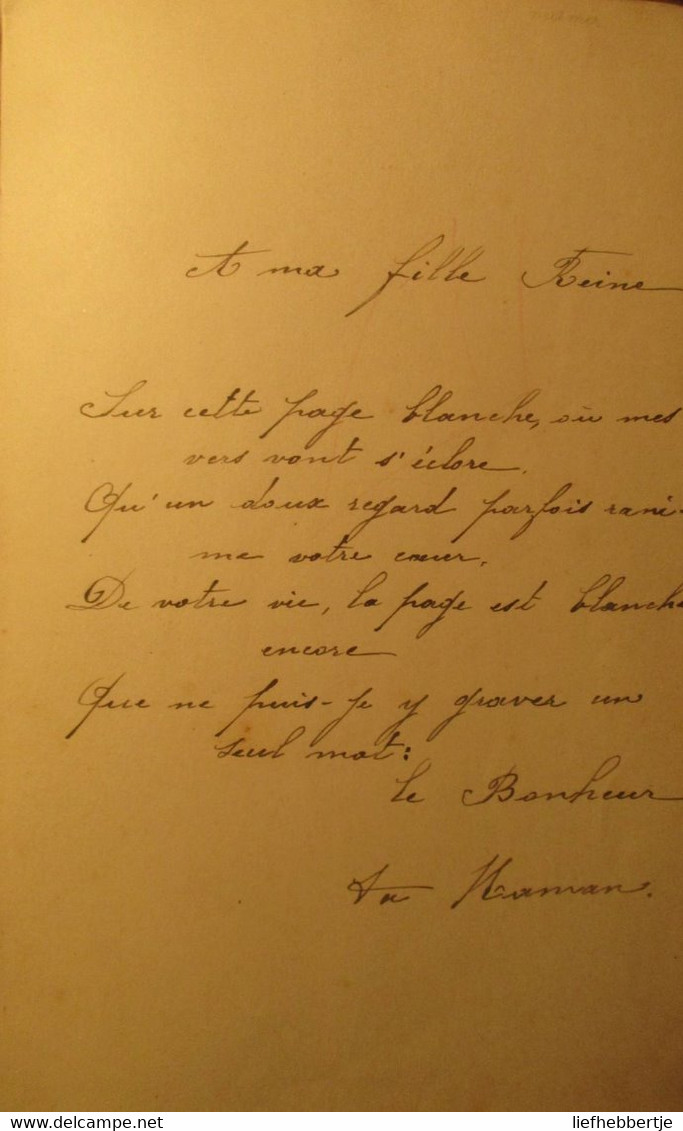 A ma fille Reine
Sur cette page blanche, où mes
vers vont s'éclore.
Qu'un doux regard parfois rani-
me votre cœur.
De votre vie, la page est blanche
encore
Que ne puis-je y graver un
seul mot:
le Bonheur
ta Maman.
www.delcampe.net
liefhebbertje